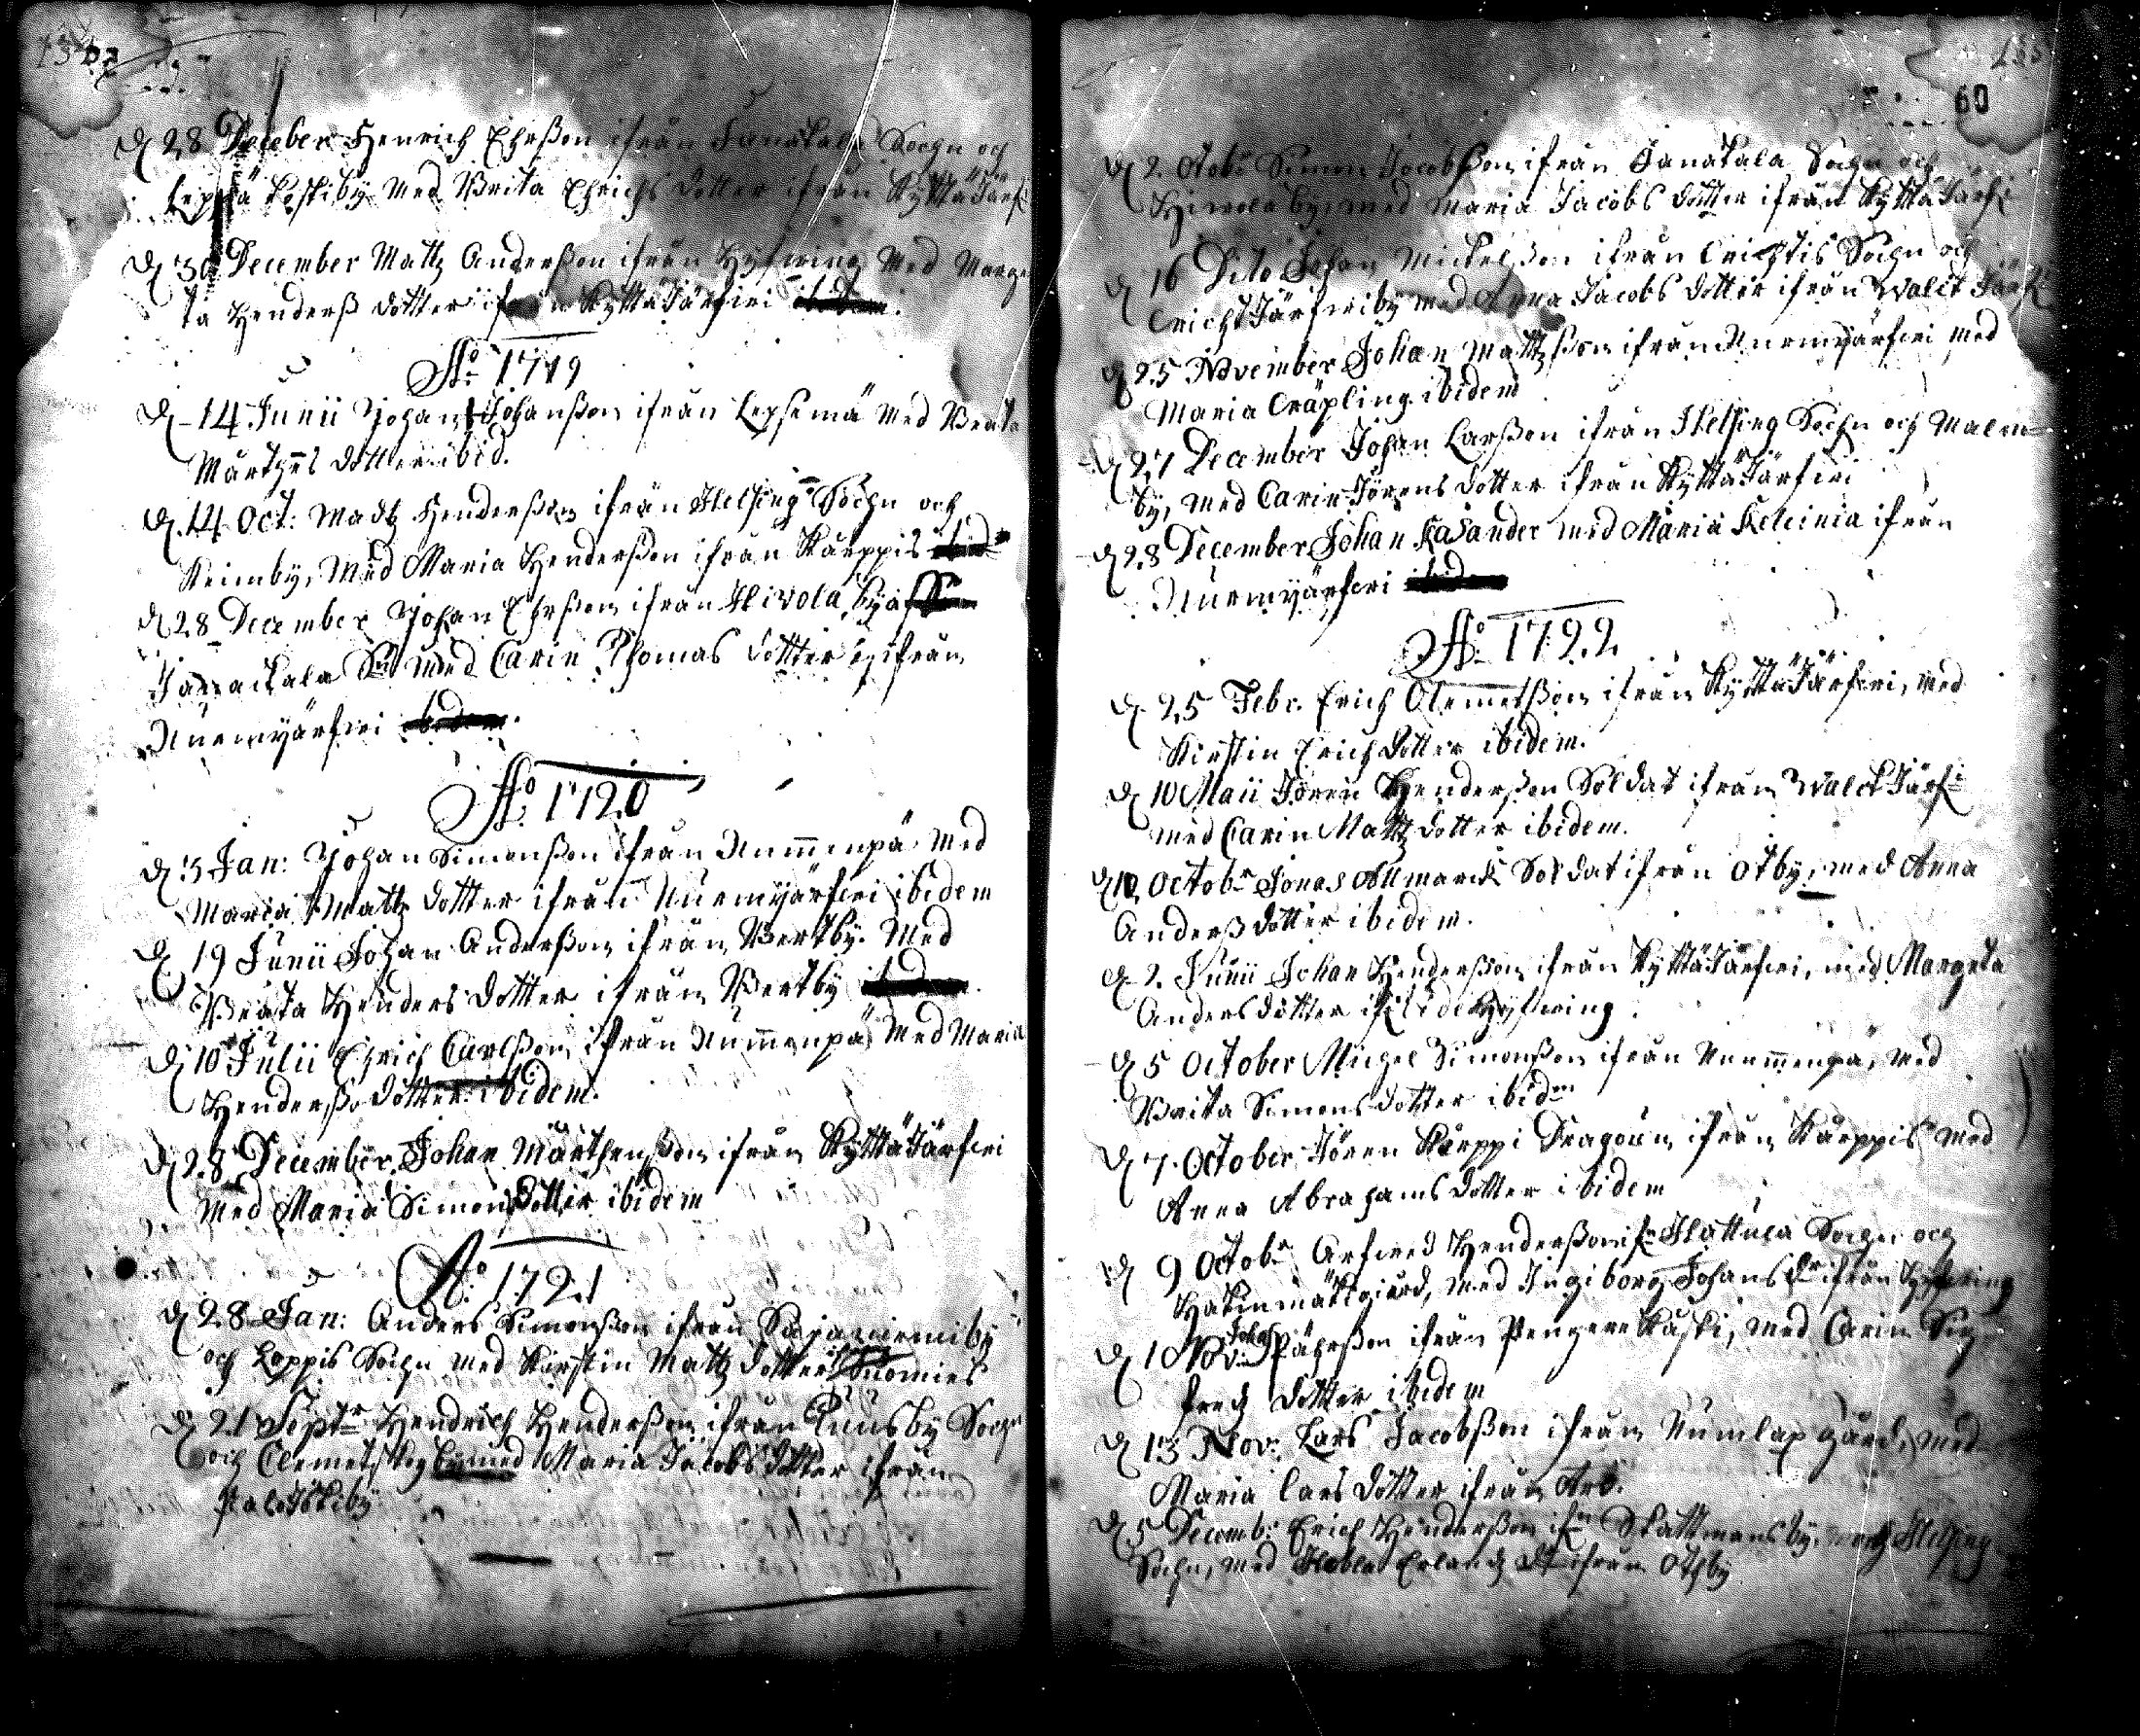 D 28 Deceber Henrich Ehrßon ifrån Janakala Sochn och
Leppäkoskiby med Brita Ehrichs dotter ifrån Kyttäjärf:
D 30 December Mattz Anderßon ifrån Hyfwing med Marge
ta Henderß dotter ifrån Kyttäjärfwi
Ao 1719
D 14 Junii Johan Johanßon ifrån Lepsemä med Beata
Mårthens dotter ibid.
D. 14 Oct: Madtz Henderßon ifrån Helsing Sochn och
Keimby, med Maria Henderßon ifrån Kärppis
D 28 December Johan Ehrßon ifrån Hivola by af
Janackala Sn med Carin Thomas dotter ifrån
Nuremyärfwi
Ao 1720
D 3 Jan: Johan Simonßon ifrån Nummenpä med
Maria Mattz dotter ifrån Nuremyärfwi ibidem
D 19 Junii Johan Anderßon ifrån Bertby. med
Beata Henders dotter ifrån Bertby
D 10 Julii Ehrich Carlßon ifrån Nummenpä med Maria
Henderß dotter ibidem.
D 28 December Johan Mårthenßon ifrån Kyttäjärfwi
med Maria Simons dotter ibidem
Ao 1721
D 28 Jan: Anders Simonßon ifrån Sajaniemiby
och Loppis Sochn med Kirstin Mattz dotter Suomies
D 21 Septr Hendrich Henderßon ifrån Puusby Sochn
och Clemetskog med Maria Jacobs dotter ifrån
Palojokiby
60
D 2. Octob: Simon Jacobßon ifrån Janakala Sochn och
Hiwola by, med Maria Jacobs dotter ifrån Kyttäjärf:
D 16 Dito Johan Mickelßon ifrån Wichtis Sochn och
Wichtjärfwiby med Anna Jacobs dotter ifrån Walckjärf:
D 25 November Johan Mattzßon ifrån Nuremyärfwi med
Maria Cräpling ibidem
D 27 December Johan Larßon ifrån Helsing Sochn och Malm
by, med Carin Jörens dotter ifrån Kyttäjärfwi
D 28 December Johan Kasander med Maria Keleinia ifrån
Nuremyärfwi
Ao 1722
D. 25 Febr. Erich Clemetßon ifrån Kyttäjärfwi, med
Kirstin Erichdotter ibidem.
D 10 Maii Jören Henderßon Soldat ifrån Walckjärf:
med Carin Mattz dotter ibidem.
D 10 Octobr Jonas Allmarck Soldat ifrån Otby, med Anna
Anderß dotter ibidem.
D 2. Junii Johan Henderßon ifrån Kyttäjärfwi, med Margeta
Andersdotter Hyfwing.
D 5 October Michel Simonßon ifrån Nummenpä, med
Brita Simons dotter ibidem
D 7. October Jören Kärppi Dragoun ifrån Kärppis med
Anna Abrahams dotter ibidem
D 9 Octobr Arfwed Henderßon ifr Hattula Sochn och
gård, med Ingiborg Johans dr ifrån Hyfwing
D 10 Nov: Johan Pährßon ifrån Pengerekåski, med Carin Sig
fredz dotter ibidem
D 13 Nov: Lars Jacobßon ifrån Numlax gård, med
Maria Lars dotter ifrån Åbo.
D 5 Decemb: Erich Henderßon ifrn Skattmansby, Helsing
Sochn, med Erlandz dr ifrån Othby